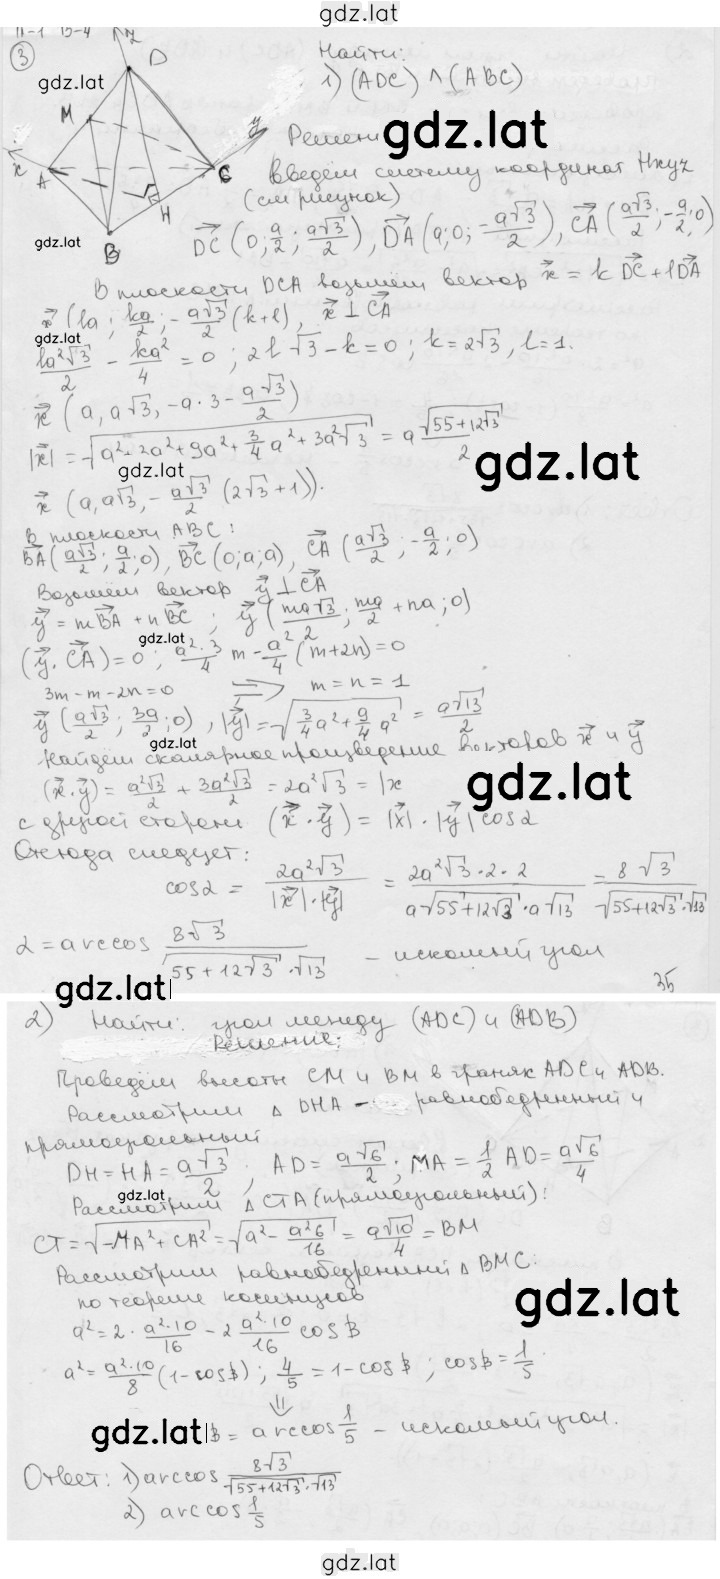 gdz.latl
П-1 В-4
③
Найти:
1) (ADC) ∧ (ABC)
gdz.lat
z
D
M
y
x
A
C
H
B
gdz.lat
введём систему координат Hxyz
(см рисунок)
gdz.lat
DC (0; a/2; a√3/2), DA (a; 0; -a√3/2), CA (a√3/2; -a/2; 0)
В плоскости DCA возьмём вектор x = k DC + l DA
x (la; ka/2; -a√3/2 (k+l), x ⊥ CA
gdz.lat
la²√3/2 - ka²/4 = 0; 2l √3 - k = 0; k = 2√3, l = 1.
x (a, a√3, -a·3 - a√3/2)
|x| = √(a² + 3a² + 9a² + 3/4 a² + 3a²√3) = a √(55+12√3)/2
gdz.lat
gdz.lat
x (a, a√3, - a√3/2 (2√3+1)).
В плоскости ABC:
BA (a√3/2; a/2; 0), BC (0; a; a), CA (a√3/2; -a/2; 0)
Возьмём вектор y ⊥ CA
y = m BA + n BC; y (ma√3/2; ma/2 + na; 0)
gdz.lat
(y · CA) = 0; a²·3/4 m - a²/4 (m+2n) = 0
3m - m - 2n = 0 ⇒ m = n = 1
y (a√3/2; 3a/2; 0), |y| = √(3/4 a² + 9/4 a²) = a√13/2
gdz.lat
Найдём скалярное произведение векторов x и y
(x·y) = a²√3/2 + 3a²√3/2 = 2a²√3 = |x
gdz.lat
с другой стороны (x · y) = |x| · |y| cos α
Отсюда следует:
cos α = 2a²√3/(|x|·|y|) = 2a²√3·2·2/(a√(55+12√3)·a√13) = 8√3/(√(55+12√3)·√13)
α = arccos 8√3/(√(55+12√3)·√13) - искомый угол
gdz.lat
35
2) Найти: угол между (ADC) и (ADB)
Решение:
Проведём высоты CM и BM в гранях ADC и ADB.
Рассмотрим △ DHA - равнобедренный и
прямоугольный
DH = HA = a√3/2; AD = a√6/2; MA = 1/2 AD = a√6/4
gdz.lat
Рассмотрим △ CTA (прямоугольный):
CT = √(-MA² + CA²) = √(a² - a²6/16) = a√10/4 = BM
Рассмотрим равнобедренный △ BMC:
по теореме косинусов
gdz.lat
a² = 2 · a²·10/16 - 2 a²·10/16 cos β
a² = a²·10/8 (1 - cos β); 4/5 = 1 - cos β; cos β = 1/5
⇓
gdz.lat
β = arccos 1/5 - искомый угол.
Ответ: 1) arccos 8√3/(√(55+12√3)·√13)
2) arccos 1/5
gdz.lat